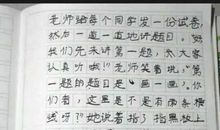 老师给每个同学发一份试卷,
然后一道一道地讲题目。"好
我们先来讲第一题,大家
认真听哦!"老师笑着说。"第
一题的题目是"画一画"。你
们看,这里是不是有两条横
线呀?"她说着指了指黑板上